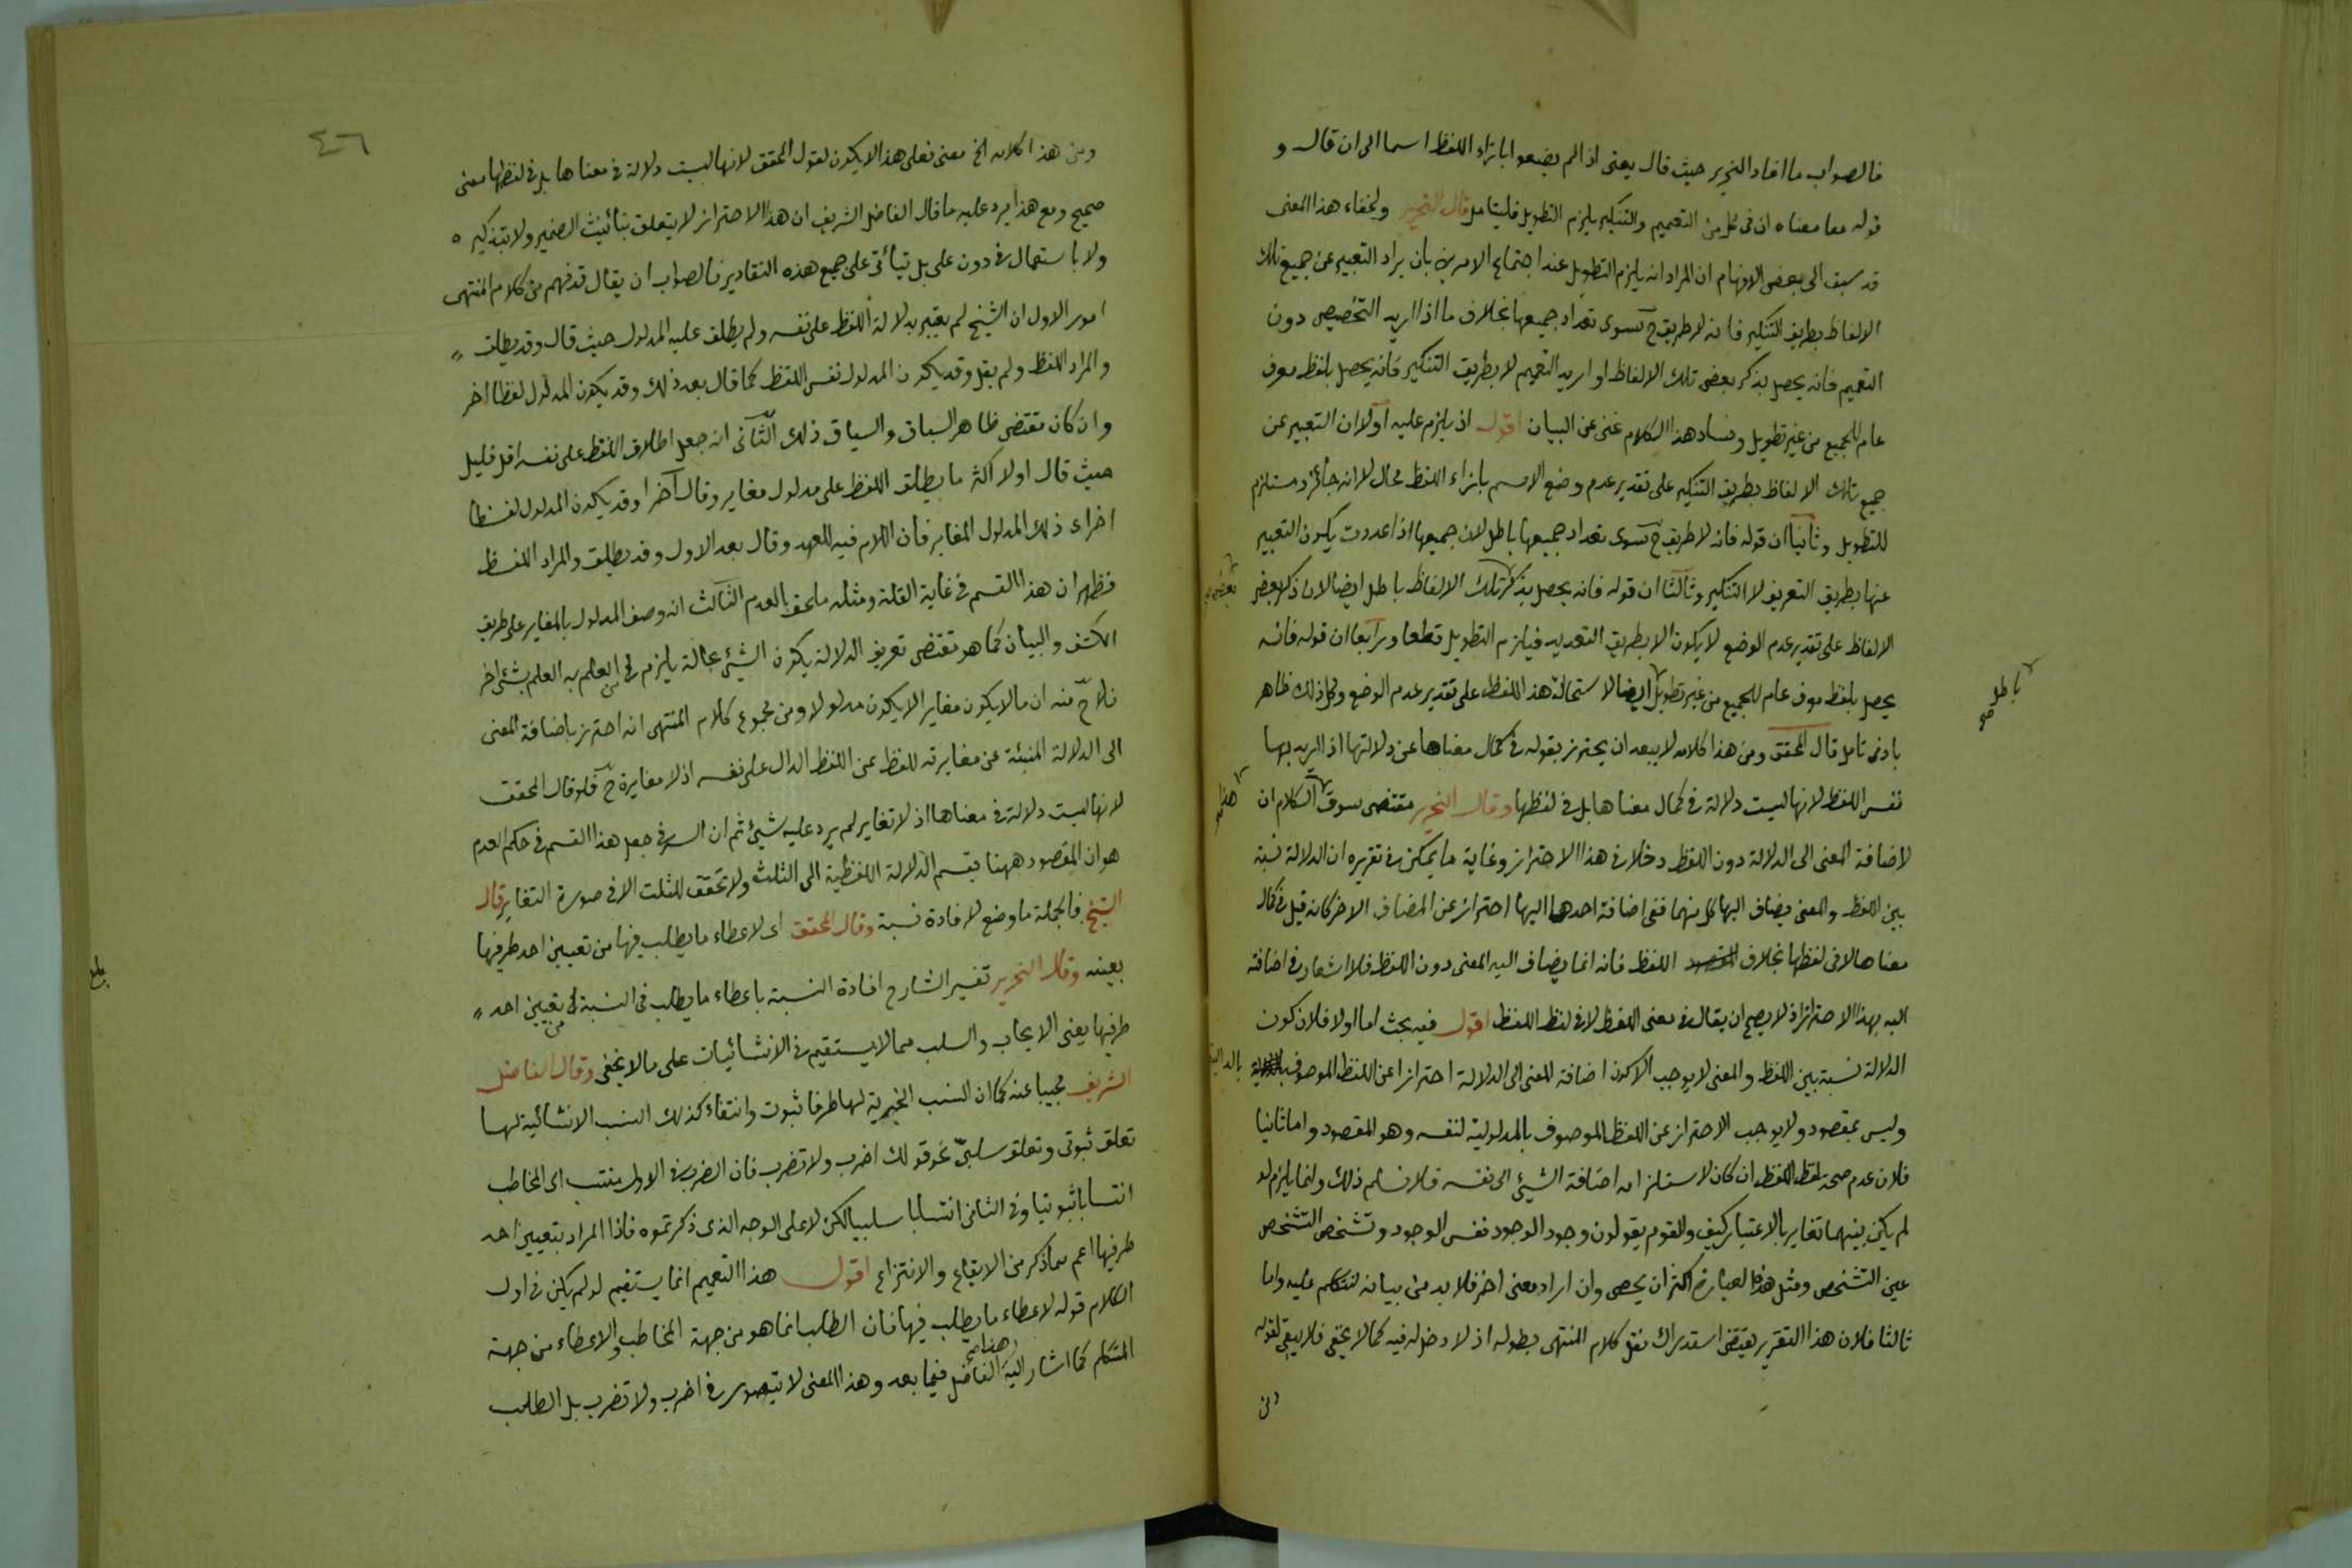 فالصواب ما افاد النحرير حيث قال يعنى اذا لم يضعوا بازاء اللفظ اسما الى ان قال و
قوله معا معناه ان فى كل من التعميم والتنكير يلزم التطويل فليتامل قال النحرير ولخفاء هذا المعنى
قد سبق الى بعض الاوهام ان المراد انه يلزم التطويل عند اجتماع الامرين بان يراد التعبير عن جميع تلك
الالفاظ بطريق التنكير فانه لا طريق ح سوى تعداد جميعها بخلاف ما اذا اريد التخصيص دون
التعميم فانه يحصل بذكر بعض تلك الالفاظ او اريد التعميم لا بطريق التنكير فانه يحصل بلفظ معرف
عام للجميع من غير تطويل وفساد هذا الكلام غنى عن البيان اقول اذ يلزم عليه اولا ان التعبير عن
جميع تلك الالفاظ بطريق التنكير على تقدير عدم وضع الاسم بازاء اللفظ محال لا انه جائز ومستلزم
للتطويل وثانيا ان قوله فانه لا طريق ح سوى تعداد جميعها باطل لان جميعها اذا عددت يكون التعبير
عنها بطريق التعريف لا التنكير وثالثا ان قوله فانه يحصل بذكر تلك الالفاظ باطل ايضا لان ذكر بعض
بعض
الالفاظ على تقدير عدم الوضع لا يكون الا بطريق التعديد فيلزم التطويل قطعا ورابعا ان قوله فانه
يحصل بلفظ معرف عام للجميع من غير تطويل ايضا لاستحالة هذا اللفظ على تقدير عدم الوضع وكل ذلك ظاهر
باطل صح
بادنى تامل قال المحقق ومن هذا كلامه لا يبعد ان يحترز بقوله فى كمال معناها عن دلالتها اذا اريد بها
نفس اللفظ لانها ليست دلالة فى كمال معناها بل فى لفظها وقال النحرير مقتضى سوق الكلام ان
هذا
لاضافة المعنى الى الدلالة دون اللفظ دخلا فى هذا الاحتراز وغاية ما يمكن فى تقريره ان الدلالة نسبة
بين اللفظ والمعنى يضاف اليها كل منهما ففى اضافة احدهما اليها احتراز عن المضاف الاخر كانه قيل فى كمال
معناها لا فى لفظها بخلاف اللفظ فانه انما يضاف اليه المعنى دون اللفظ فلا اشعار فى اضافته
اليه بهذا الاحتراز اذ لا يصح ان يقال فى معنى اللفظ لا فى لفظ اللفظ اقول فيه بحث اما اولا فلان كون
الدلالة نسبة بين اللفظ والمعنى لا يوجب الا كون اضافة المعنى الى الدلالة احترازا عن اللفظ الموصوف بالدالية
وليس بمقصود ولا يوجب الاحتراز عن اللفظ الموصوف بالمدلولية لنفسه وهو المقصود واما ثانيا
فلان عدم صحة لفظ اللفظ ان كان لاستلزامه اضافة الشيئ الى نفسه فلا نسلم ذلك وانما يلزم لو
لم يكن بينهما تغاير بالاعتبار كيف والقوم يقولون وجود الوجود نفس الوجود وتشخص التشخص
عين التشخص ومثل هذه العبارة اكثر ان يحصى وان اراد معنى اخر فلا بد من بيانه لنتكلم عليه واما
ثالثا فلان هذا التقرير يقتضى استدراك نقل كلام المنتهى بطوله اذ لا دخل له فيه كما لا يخفى فلا يبقى لقوله
ومن
٤٦
ومن هذا كلامه الخ معنى فعلى هذا لا يكون لقول المحقق لانها ليست دلالة فى معناها بل فى لفظها معنى
صحيح ومع هذا يرد عليه ما قال الفاضل الشريف ان هذا الاحتراز لا يتعلق بتأنيث الضمير ولا بتذكيره
ولا باستعمال فى دون على بل يتأتى على جميع هذه التقادير فالصواب ان يقال قد فهم من كلام المنتهى
امور الاول ان الشيخ لم يعتبر بدلالة اللفظ على نفسه ولم يطلق عليه المدلول حيث قال وقد يطلق
والمراد اللفظ ولم يقل وقد يكون المدلول نفس اللفظ كما قال بعد ذلك وقد يكون المدلول لفظا اخر
وان كان مقتضى ظاهر السباق والسياق ذلك الثانى انه جعل اطلاق اللفظ على نفسه اقل قليل
حيث قال اولا اكثر ما يطلق اللفظ على مدلول مغاير وقال آخرا وقد يكون المدلول لفظا
اخر اى ذلك المدلول المغاير فان اللام فيه للعهد وقال بعد الاول وقد يطلق والمراد اللفظ
فظهر ان هذا القسم فى غاية القلة ومثله ملحق بالعدم الثالث انه وصف المدلول بالمغاير على طريق
الكشف والبيان كما هو مقتضى تعريف الدلالة بكون الشيئ بحالة يلزم من العلم به العلم بشئ اخر
فلاح منه ان ما لا يكون مغايرا لا يكون مدلولا ومن مجموع كلام المنتهى انه احترز باضافة المعنى
الى الدلالة المنبئة عن مغايرته للفظ عن اللفظ الدال على نفسه اذ لا مغايرة ح فلو قال المحقق
لانها ليست دلالة فى معناها اذ لا تغاير لم يرد عليه شيئ ثم ان السر فى جعل هذا القسم فى حكم العدم
هو ان المقصود ههنا تقسيم الدلالة اللفظية الى الثلث ولا تحقق للثلث الا فى صورة التغاير قال
الشيخ فالجملة ما وضع لافادة نسبة وقال المحقق اى لاعطاء ما يطلب فيها من تعيين احد طرفيها
بعينه وقال النحرير تفسير الشارح افادة النسبة باعطاء ما يطلب فى النسبة من تعيين احد
طرفيها يعنى الايجاب والسلب مما لا يستقيم فى الانشائيات على ما لا يخفى وقال الفاضل
الشريف مجيبا عنه كما ان النسب الخبرية لها طرفا ثبوت وانتفاء كذلك النسب الانشائية لها
تعلق ثبوتى وتعلق سلبى نحو قولك اضرب ولا تضرب فان الضرب فى الاول منتسب الى المخاطب
انتسابا ثبوتيا وفى الثانى انتسابا سلبيا لكن لا على الوجه الذى ذكرتموه فاذا المراد بتعيين احد
طرفيها اعم مما ذكر من الايقاع والانتزاع اقول هذا التعميم انما يستقيم لو لم يكن فى اول
الكلام قوله لاعطاء ما يطلب فيها فان الطلب انما هو من جهة المخاطب والاعطاء من جهة
المتكلم كما اشار اليه هذا الفاضل فيما بعد وهذا المعنى لا يتصور فى اضرب ولا تضرب بل الطلب